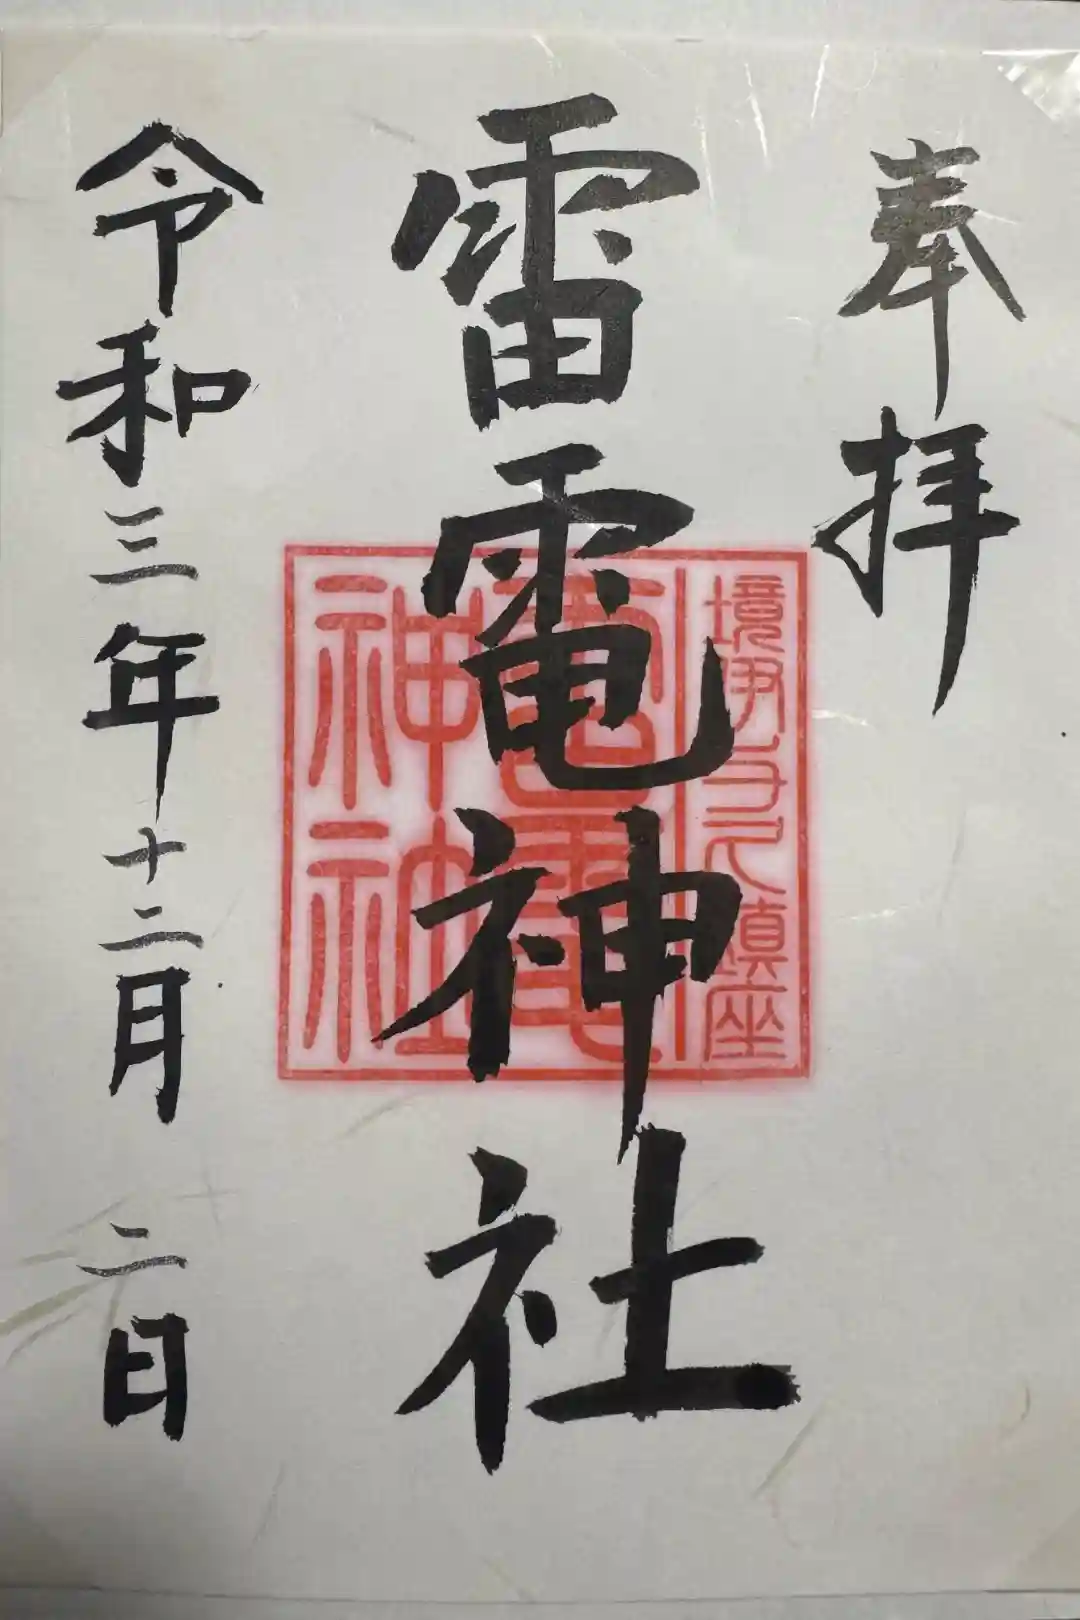 奉拝
雷電神社
令和三年十二月二日
境伊与久鎮座
雷電
神社